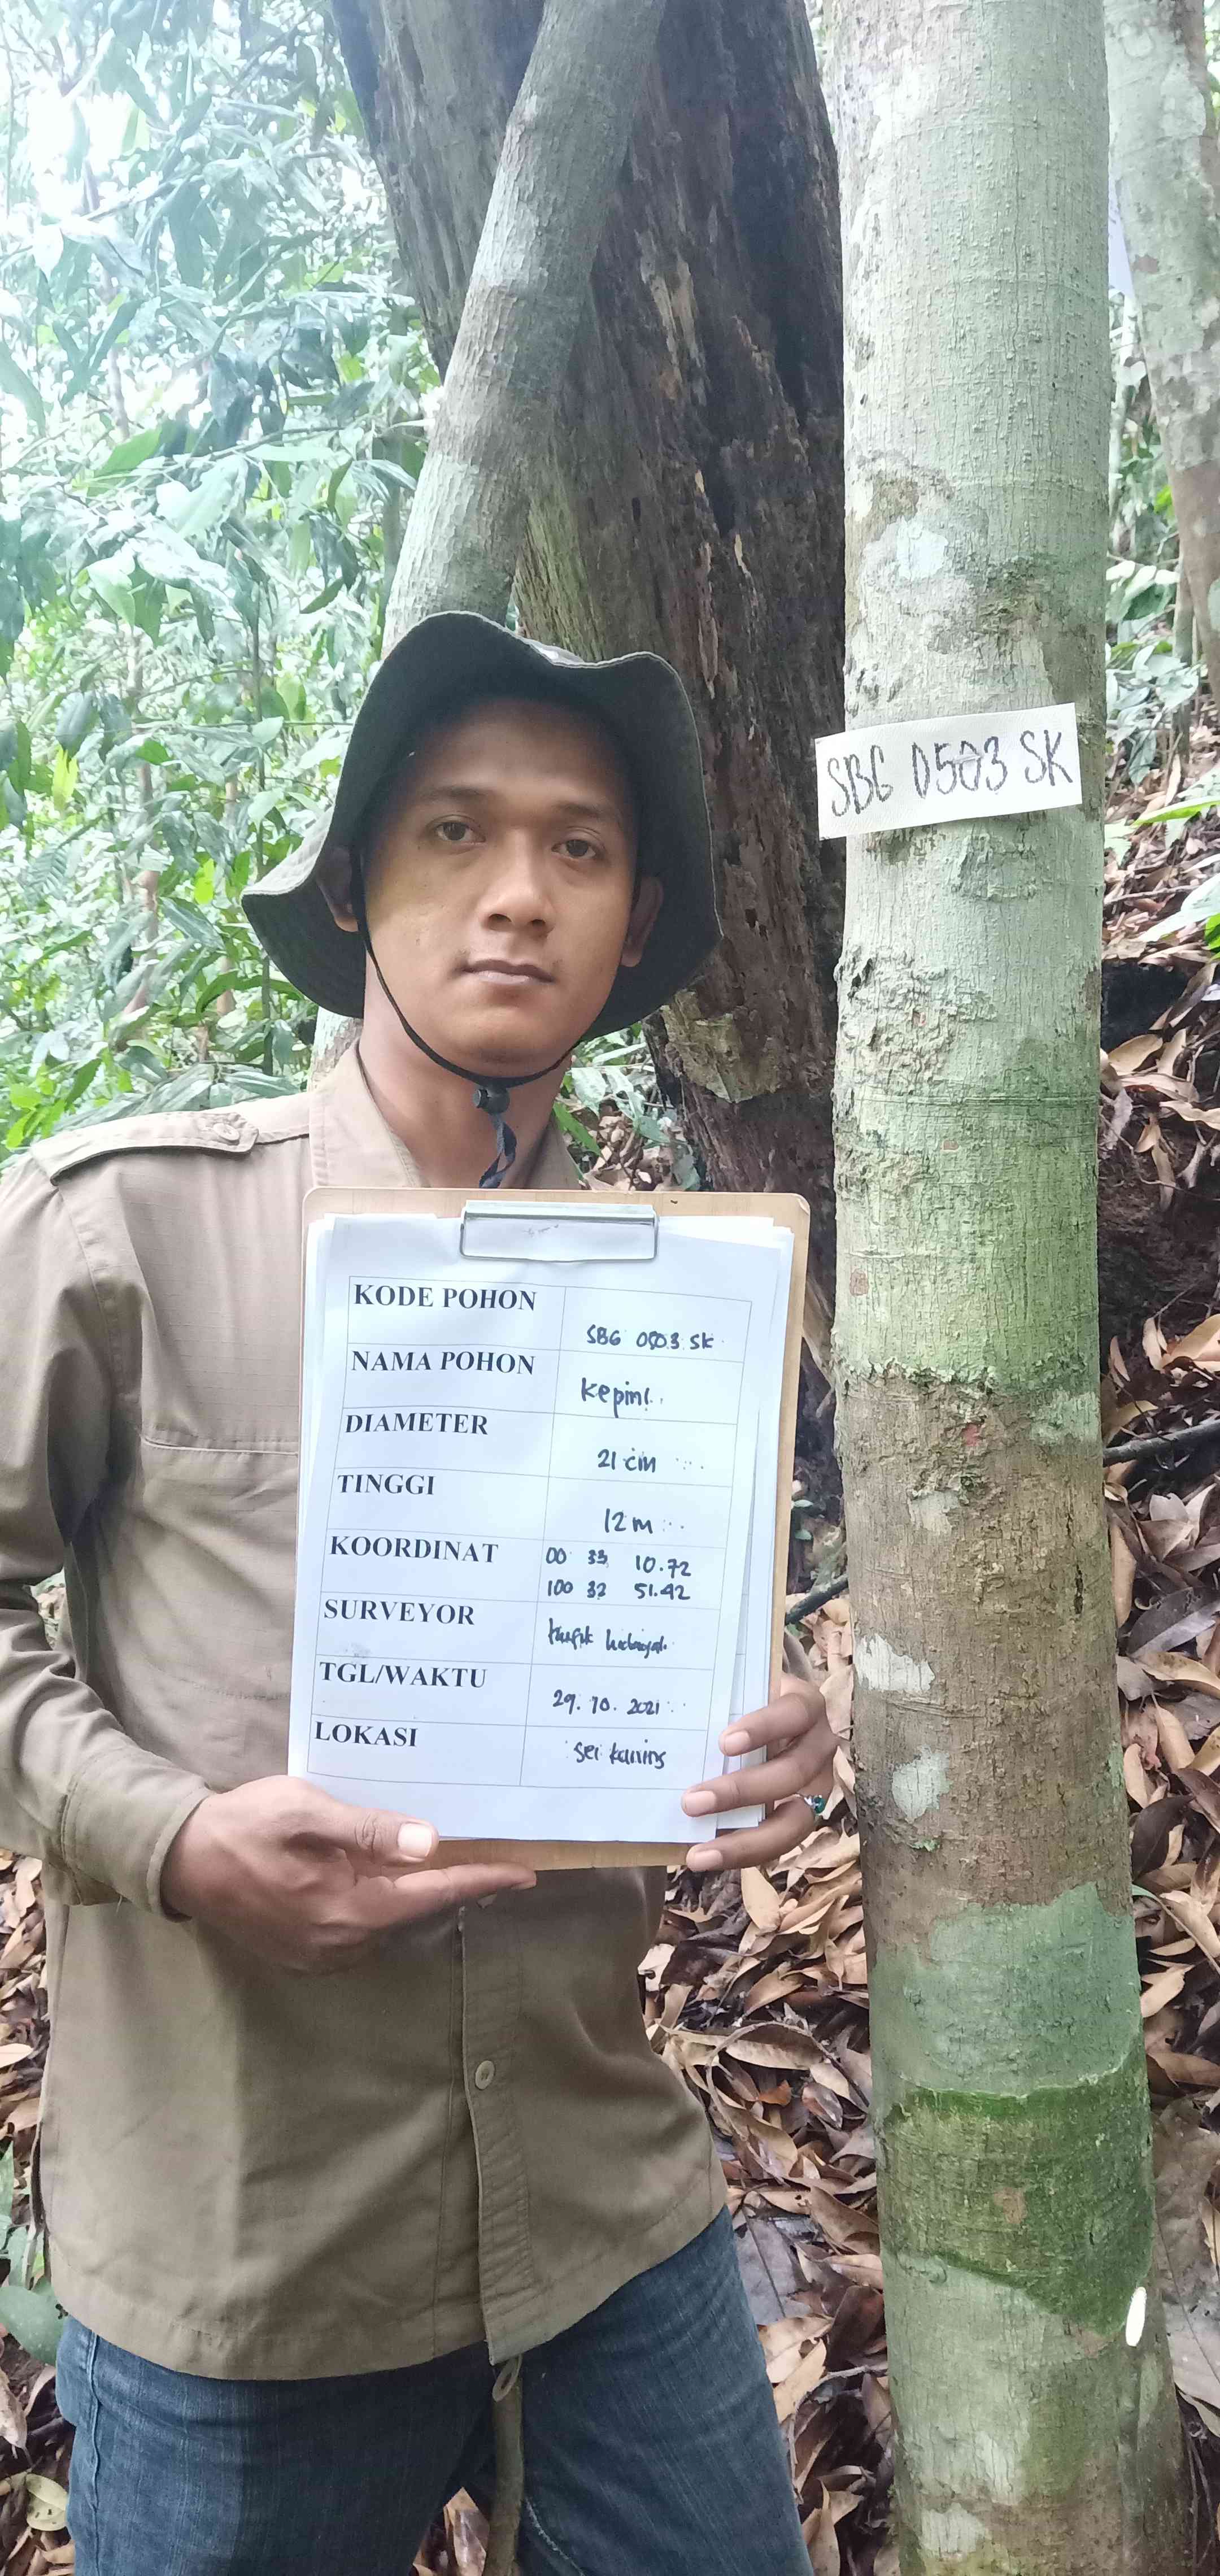 SBG 0503 SK
KODE POHON SBG 0503 SK
NAMA POHON Kepini
DIAMETER 21 cm
TINGGI 12 m
KOORDINAT 00 33 10.72
100 32 51.42
SURVEYOR
TGL/WAKTU 29.10.2021
LOKASI Sei